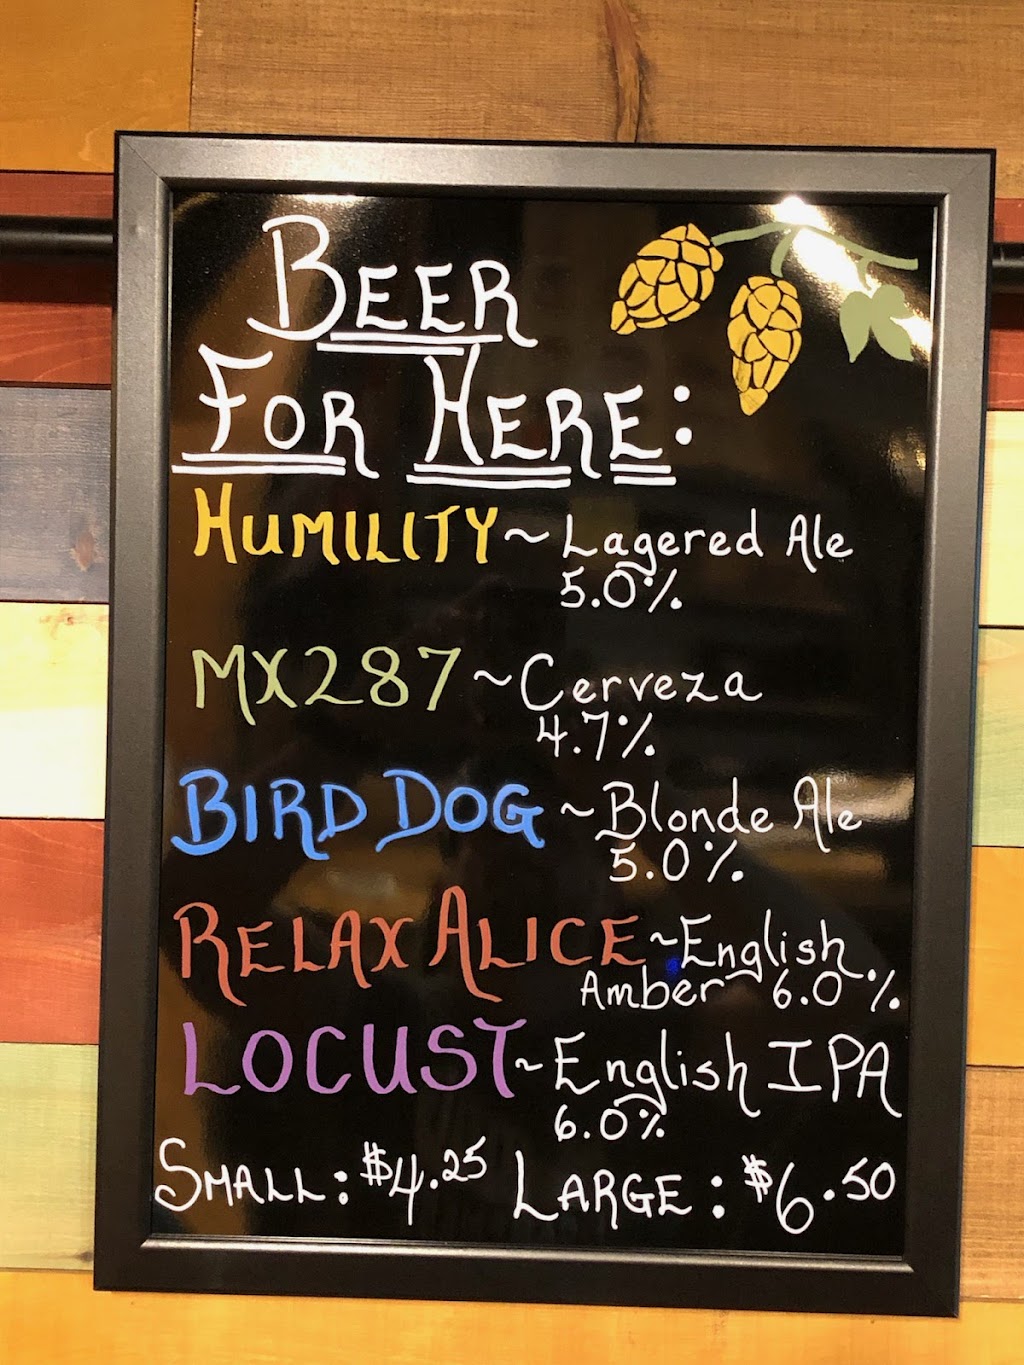 BEER
FOR HERE:
HUMILITY ~ Lagered Ale
5.0%
MX287 ~ Cerveza
4.7%
BIRD DOG ~ Blonde Ale
5.0%
RELAX ALICE ~ English
Amber 6.0%
LOCUST ~ English IPA
6.0%
SMALL: $4.25 LARGE: $6.50